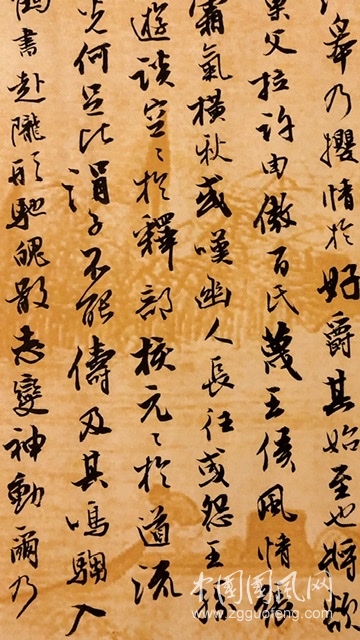 皋乃攖情於好爵其始至也將欲
巢父拉許由傲百氏蔑王侯風情張
霜氣橫秋或嘆幽人長往或怨王孫
遊談空〻於釋部核元〻於道流
光何足比涓子不能儔及其鳴騶入
鶴書赴隴形馳魄散志變神動爾乃
中国国风网
www.zgguofeng.com